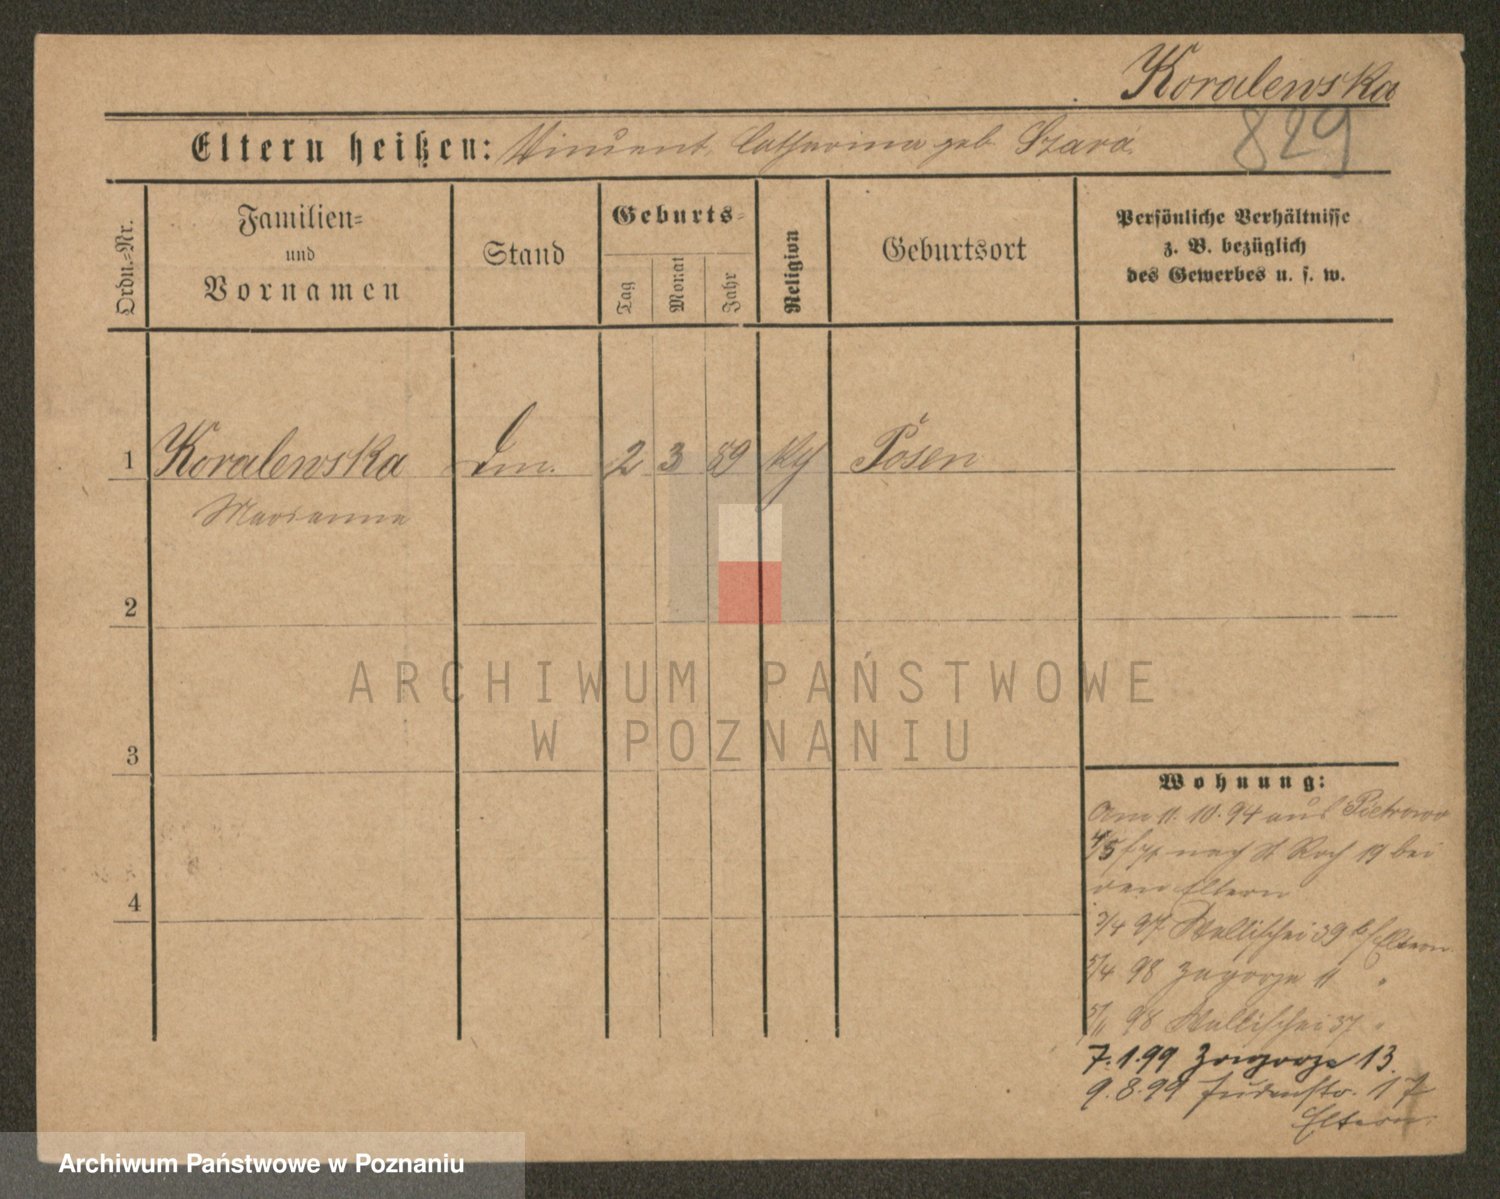 Koralewska
829
Eltern heißen: Vincent, Catharina geb. Szara
Ordn.=Nr.
Familien=
und
Vornamen
Stand
Geburts=
Tag
Monat
Jahr
Religion
Geburtsort
Persönliche Verhältnisse
z. B. bezüglich
des Gewerbes u. s. w.
1 Koralewska 2 3 Posen
Marianna
2
ARCHIWUM PAŃSTWOWE
W POZNANIU
3
4
Wohnung:
Am 11.10.94 aus Pietrowo
nach St Roch 19 bei
den Eltern
3/4 97 Wallischei 39 b/ Eltern
5/4 98 Zagorze 11 "
5/11 98 Wallischei 37 "
7.1.99 Zagorze 13.
9.8.99 Judenstr. 17
Eltern.
Archiwum Państwowe w Poznaniu